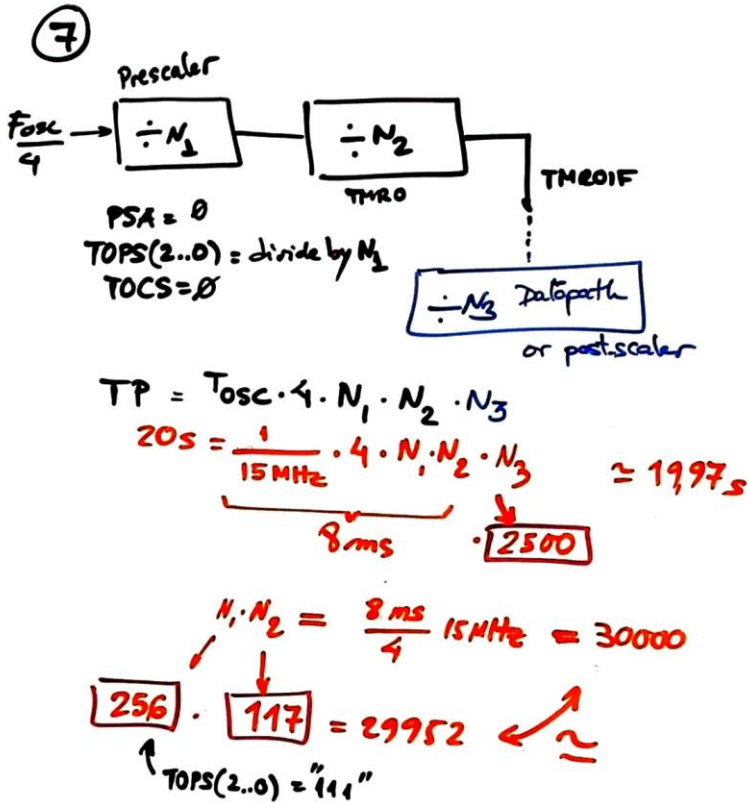 7
Prescaler
Fosc/4 → ÷N₁ ÷N₂
TMR0
TMR0IF
PSA = 0
T0PS(2..0) = divide by N₁
T0CS=0
÷N₃ Datapath
or post-scaler
TP = Tosc · 4 · N₁ · N₂ · N₃
20s = 1/15MHz · 4 · N₁ · N₂ · N₃ ≃ 19,97s
8ms · 2500
N₁·N₂ = 8 ms/4 15MHz = 30000
256 · 117 = 29952 ≃
T0PS(2..0) = "111"